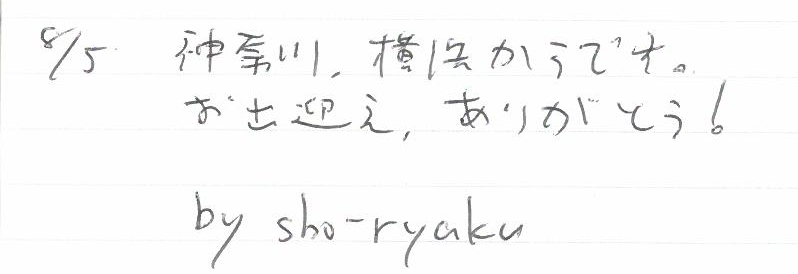 8/5 神奈川,横浜からです。
お出迎え,ありがとう!
by sho-ryaku